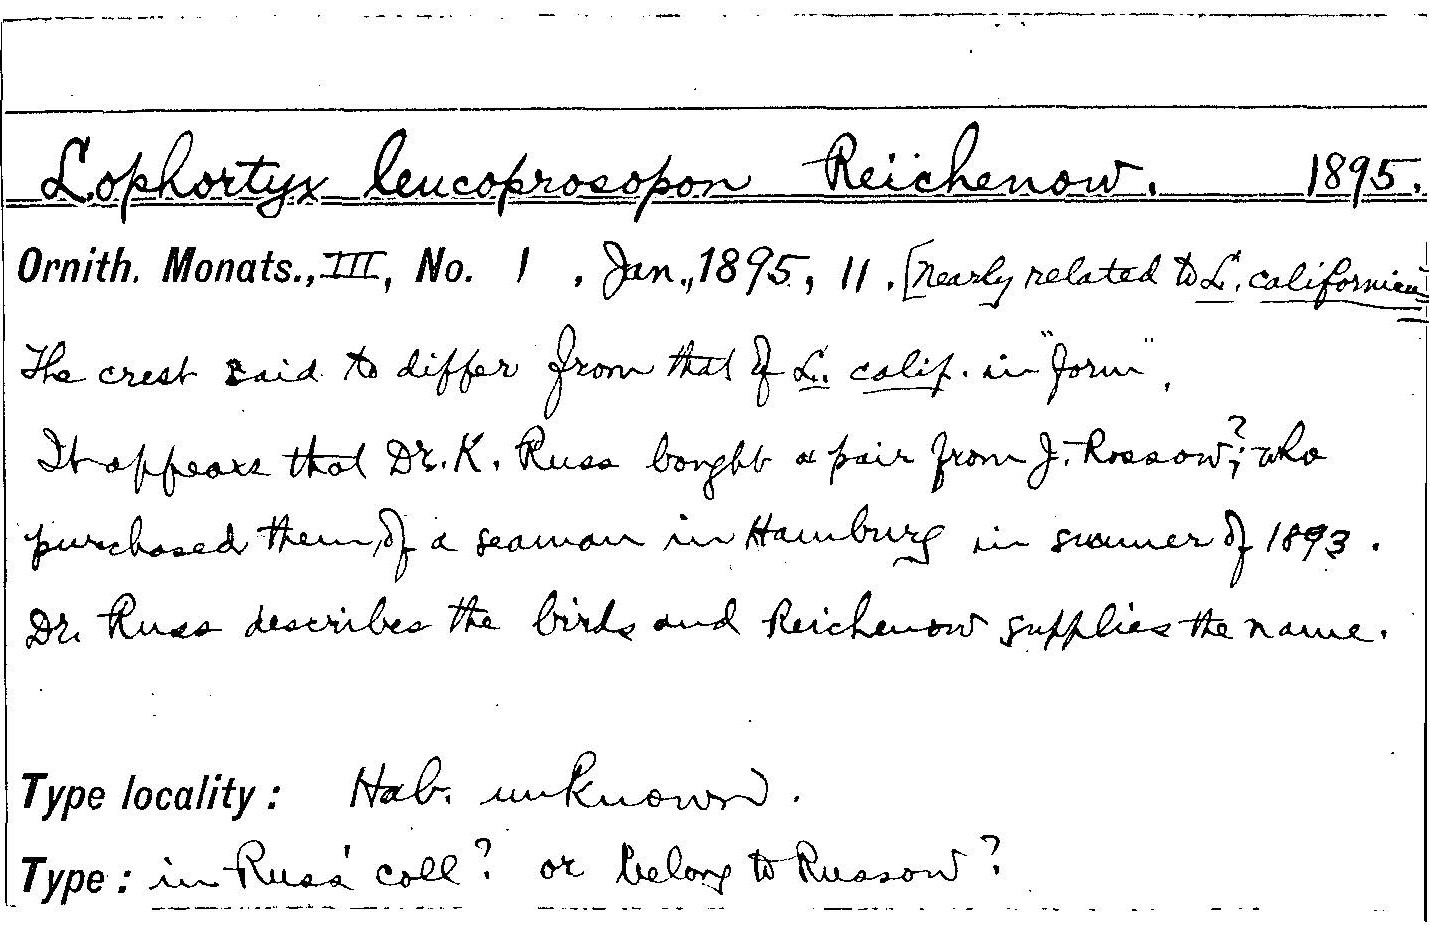 Lophortyx leucoprosopon Reichenow. 1895.
Ornith. Monats., III, No. 1, Jan., 1895, 11. [nearly related to L. californicu
The crest said to differ from that of L. calif. in "form".
It appears that Dr. K. Russ bought a pair from J. Rossow?; who
purchased them of a seaman in Hamburg in summer of 1893.
Dr. Russ describes the birds and Reichenow supplies the name.
Type locality: Hab. unknown.
Type: in Russ' coll? or belong to Russow?